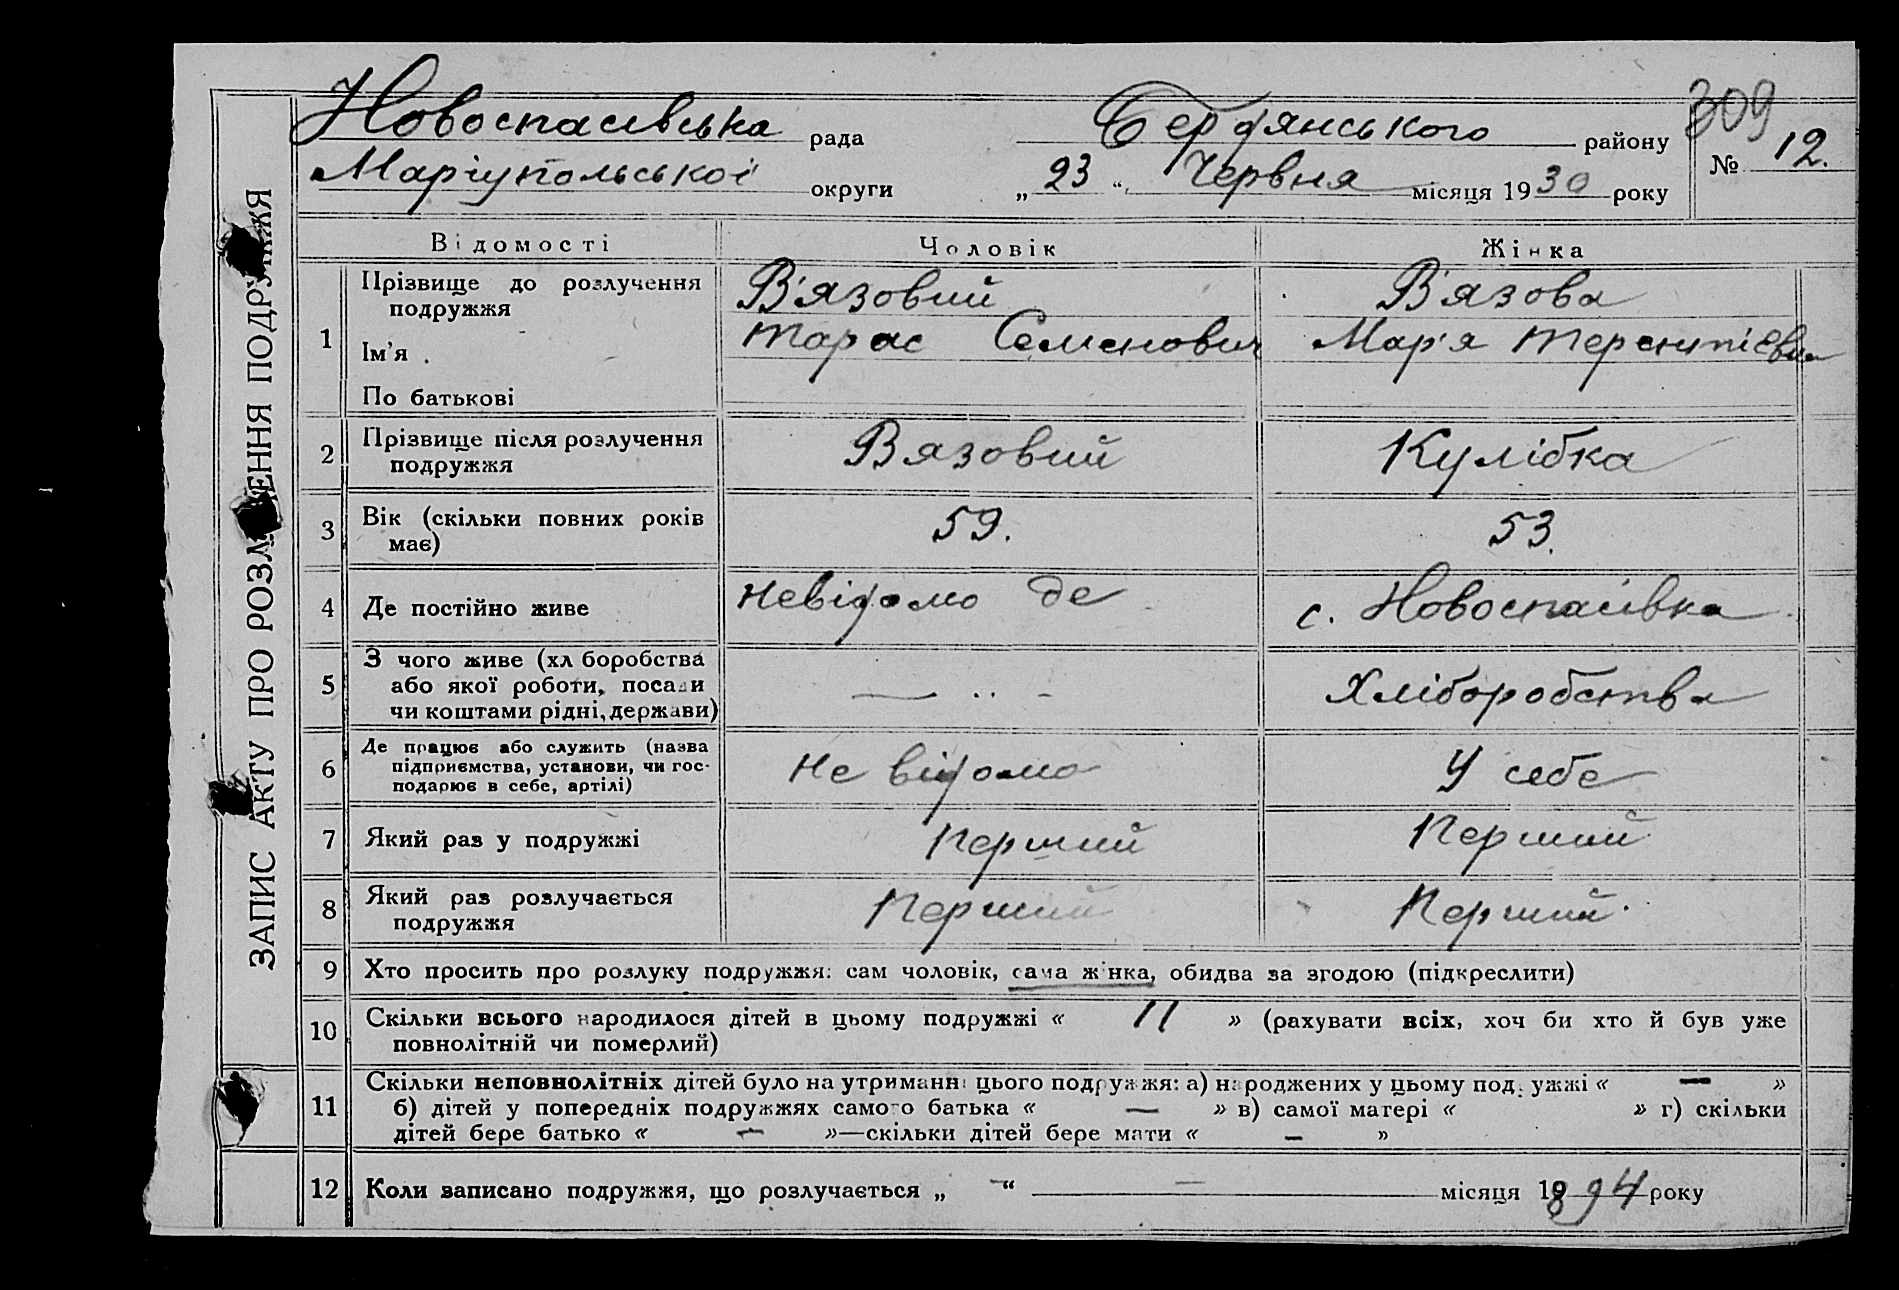 309
Новоспасівська рада Бердянського району № 12.
Маріупольської округи „ 23 “ Червня місяця 1930 року
ЗАПИС АКТУ ПРО РОЗЛ ЕННЯ ПОДРУЖЖЯ
Відомості Чоловік Жінка
1 Прізвище до розлучення подружжя В'язовий В'язова
Ім'я Тарас Семенович Мар'я Терентієвн
По батькові
2 Прізвище після розлучення Вязовий Кулібка
подружжя
3 Вік (скільки повних років 59. 53.
має)
4 Де постійно живе Невідомо де с. Новоспасівка
5 З чого живе (хл боробства
або якої роботи, посади — Хліборобства
чи коштами рідні, держави)
6 Де працює або служить (назва
підприємства, установи, чи гос- Не відомо У себе
подарює в себе, артілі)
7 Який раз у подружжі Перший Перший
8 Який раз розлучається Перший Перший.
подружжя
9 Хто просить про розлуку подружжя: сам чоловік, сама жінка, обидва за згодою (підкреслити)
10 Скільки всього народилося дітей в цьому подружжі « 11 » (рахувати всіх, хоч би хто й був уже
повнолітній чи померлий)
11 Скільки неповнолітніх дітей було на утриманні цього подружжя: а) народжених у цьому подружжі « — »
б) дітей у попередніх подружжях самого батька « — » в) самої матері « » г) скільки
дітей бере батько « — »—скільки дітей бере мати « — »
12 Коли записано подружжя, що розлучається „ — “ — місяця 1894 року